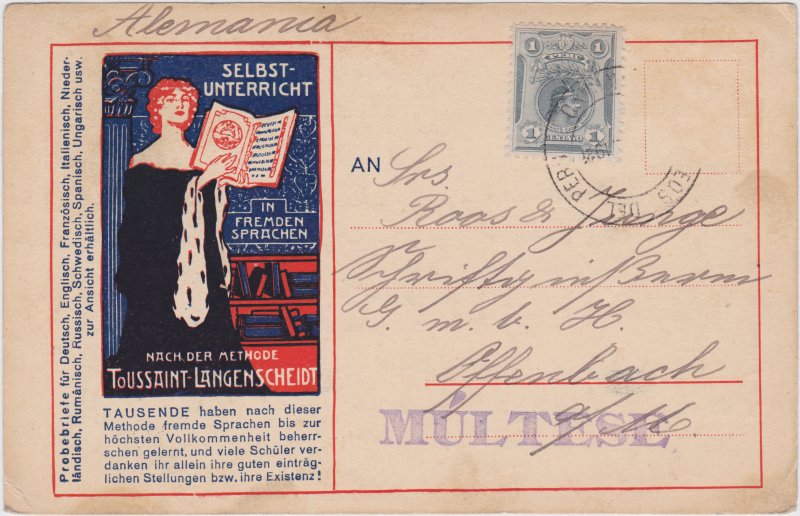 Alemania
Probebriefe für Deutsch, Englisch, Französisch, Italienisch, Nieder-
ländisch, Rumänisch, Russisch, Schwedisch, Spanisch, Ungarisch usw.
zur Ansicht erhältlich.
SELBST-
UNTERRICHT
IN
FREMDEN
SPRACHEN
NACH DER METHODE
TOUSSAINT-LANGENSCHEIDT
TAUSENDE haben nach dieser
Methode fremde Sprachen bis zur
höchsten Vollkommenheit beherr-
schen gelernt, und viele Schüler ver-
danken ihr allein ihre guten einträg-
lichen Stellungen bzw. ihre Existenz!
1 1
PERU
1 CENTAVO 1
DEL PER
AN
Srs.
Roos & Junge
Schriftgießerei
G. m. b. H.
Offenbach
a/M
MÚLTESE